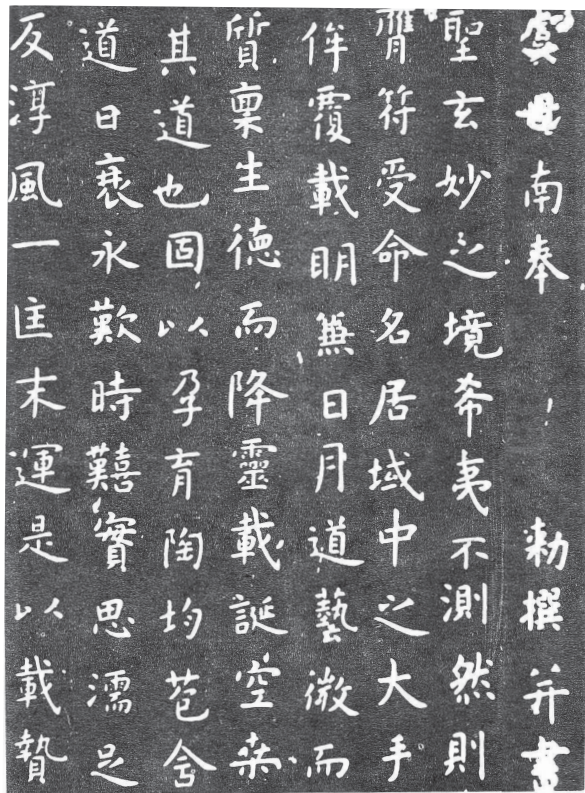 虞世南奉 勑撰并書
聖玄妙之境希夷不測然則
膺符受命名居域中之大手
侔覆載明兼日月道藝微而
質稟生德而降靈載誕空桒
其道也固以孕育陶均苞含
道日衰永歎時囏實思濡足
反淳風一匡末運是以載贄